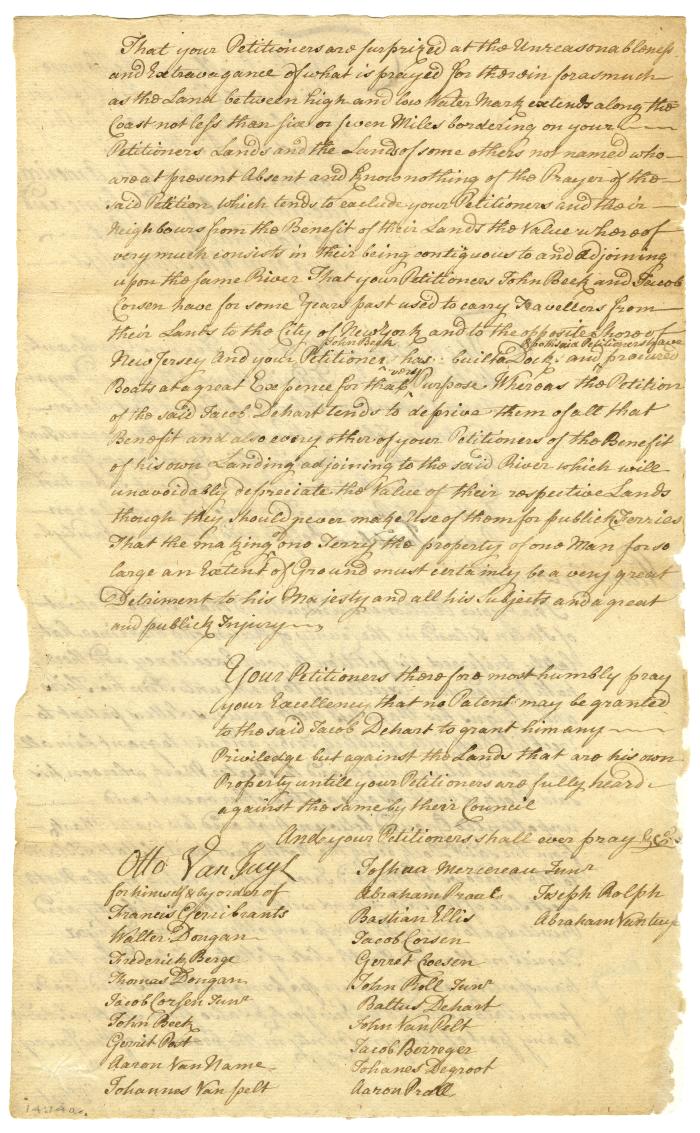 That your Petitioners are surprized at the Unreasonableness
and Extravagance of what is prayed for therein forasmuch
as the Land between high and low Water Mark extends along the
Coast not less than six or seven Miles bordering on your
Petitioners Lands and the Lands of some others not named who
are at present Absent and know nothing of the Prayer of the
said Petition which tends to exclude your Petitioners and their
Neighbours from the Benefit of their Lands the Value whereof
very much consists in their being contiguous to and adjoining
upon the same River That your Petitioners John Beek and Jacob
Corsen have for some Years past used to carry Travellers from
their Lands to the City of New York and to the opposite Shore of
John Beek said Petitioners have
New Jersey And your Petitioner has built a Dock and procured
very
Boats at a great Expence for that Purpose Whereas the Petition
of the said Jacob Dehart tends to deprive them of all that
Benefit and also every other of your Petitioners of the Benefit
of his own Landing adjoining to the said River which will
unavoidably depreciate the Value of their respective Lands
though they should never make Use of them for publick Ferries
That the making of one Ferry the property of one Man for so
large an Extent of Ground must certainly be a very great
Detriment to his Majesty and all his Subjects and a great
and publick Injury
Your Petitioners therefore most humbly pray
your Excellency that no Patent may be granted
to the said Jacob Dehart to grant him any
Priviledge but against the Lands that are his own
Property untill your Petitioners are fully heard
against the same by their Council
And your Petitioners shall ever pray &c
Otto Van Tuyl
for himself & by order of
Francis Gerribrants
Walter Dongan
Frederick Berge
Thomas Dongan
Jacob Corsen Junr
John Beek
Gerrit Post
Aaron Van Name
Johannes Van pelt
Joshua Mercereau Junr
Abraham Praul
Bastian Ellis
Jacob Corsen
Gerret Coesen
John Roll Junr
Baltus Dehart
John Van Pelt
Jacob Berreger
Johanes Degroot
Aaron Prall
Joseph Rolph
Abraham Vantuyl